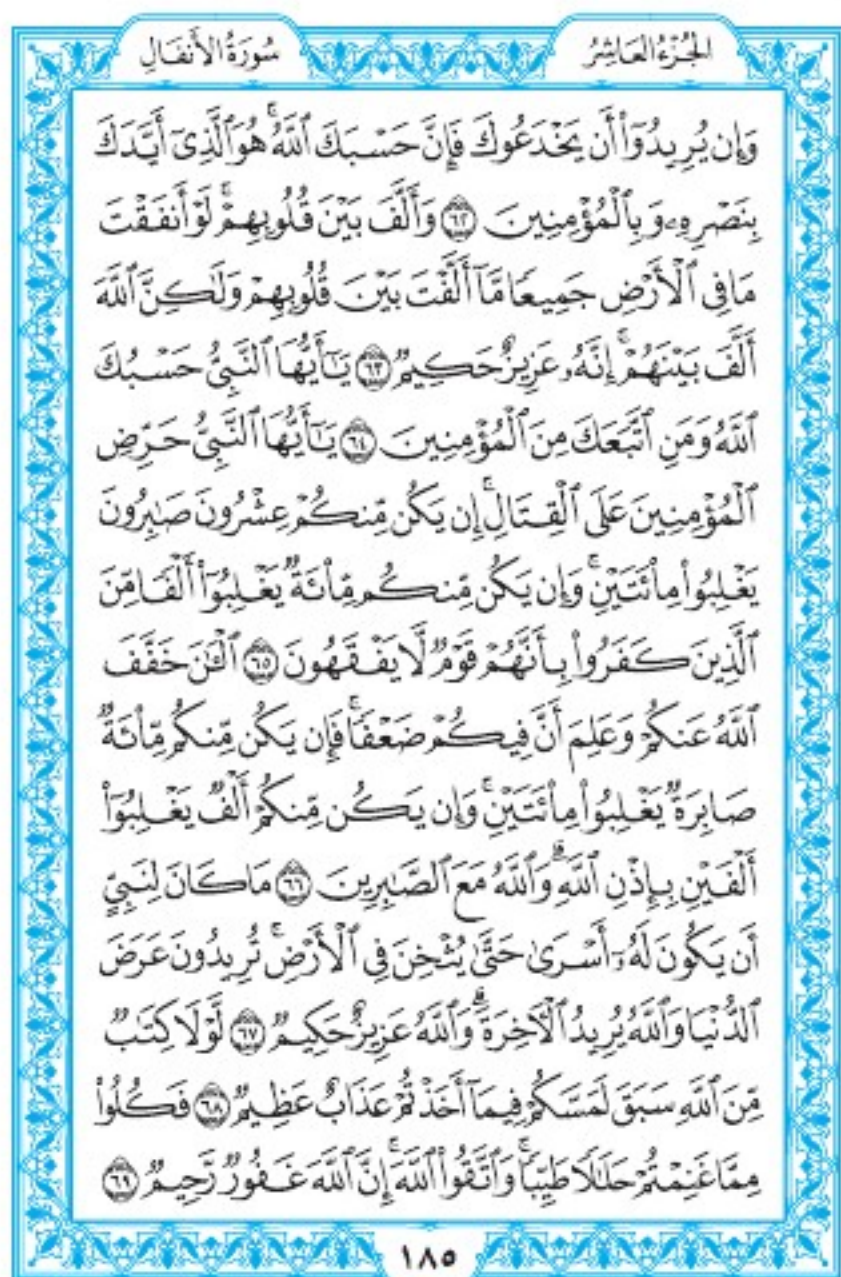 الجُزْءُ العَاشِرُ
سُورَةُ الأَنفَالِ
وَإِن يُرِيدُوٓا۟ أَن يَخْدَعُوكَ فَإِنَّ حَسْبَكَ ٱللَّهُ ۚ هُوَ ٱلَّذِىٓ أَيَّدَكَ
بِنَصْرِهِۦ وَبِٱلْمُؤْمِنِينَ ٦٢ وَأَلَّفَ بَيْنَ قُلُوبِهِمْ ۚ لَوْ أَنفَقْتَ
مَا فِى ٱلْأَرْضِ جَمِيعًا مَّآ أَلَّفْتَ بَيْنَ قُلُوبِهِمْ وَلَٰكِنَّ ٱللَّهَ
أَلَّفَ بَيْنَهُمْ ۚ إِنَّهُۥ عَزِيزٌ حَكِيمٌ ٦٣ يَٰٓأَيُّهَا ٱلنَّبِىُّ حَسْبُكَ
ٱللَّهُ وَمَنِ ٱتَّبَعَكَ مِنَ ٱلْمُؤْمِنِينَ ٦٤ يَٰٓأَيُّهَا ٱلنَّبِىُّ حَرِّضِ
ٱلْمُؤْمِنِينَ عَلَى ٱلْقِتَالِ ۚ إِن يَكُن مِّنكُمْ عِشْرُونَ صَٰبِرُونَ
يَغْلِبُوا۟ مِا۟ئَتَيْنِ ۚ وَإِن يَكُن مِّنكُم مِّا۟ئَةٌ يَغْلِبُوٓا۟ أَلْفًا مِّنَ
ٱلَّذِينَ كَفَرُوا۟ بِأَنَّهُمْ قَوْمٌ لَّا يَفْقَهُونَ ٦٥ ٱلْـَٰٔنَ خَفَّفَ
ٱللَّهُ عَنكُمْ وَعَلِمَ أَنَّ فِيكُمْ ضَعْفًا ۚ فَإِن يَكُن مِّنكُم مِّا۟ئَةٌ
صَابِرَةٌ يَغْلِبُوا۟ مِا۟ئَتَيْنِ ۚ وَإِن يَكُن مِّنكُمْ أَلْفٌ يَغْلِبُوٓا۟
أَلْفَيْنِ بِإِذْنِ ٱللَّهِ ۗ وَٱللَّهُ مَعَ ٱلصَّٰبِرِينَ ٦٦ مَا كَانَ لِنَبِىٍّ
أَن يَكُونَ لَهُۥٓ أَسْرَىٰ حَتَّىٰ يُثْخِنَ فِى ٱلْأَرْضِ ۚ تُرِيدُونَ عَرَضَ
ٱلدُّنْيَا وَٱللَّهُ يُرِيدُ ٱلْـَٔاخِرَةَ ۗ وَٱللَّهُ عَزِيزٌ حَكِيمٌ ٦٧ لَّوْلَا كِتَٰبٌ
مِّنَ ٱللَّهِ سَبَقَ لَمَسَّكُمْ فِيمَآ أَخَذْتُمْ عَذَابٌ عَظِيمٌ ٦٨ فَكُلُوا۟
مِمَّا غَنِمْتُمْ حَلَٰلًا طَيِّبًا ۚ وَٱتَّقُوا۟ ٱللَّهَ ۚ إِنَّ ٱللَّهَ غَفُورٌ رَّحِيمٌ ٦٩
١٨٥